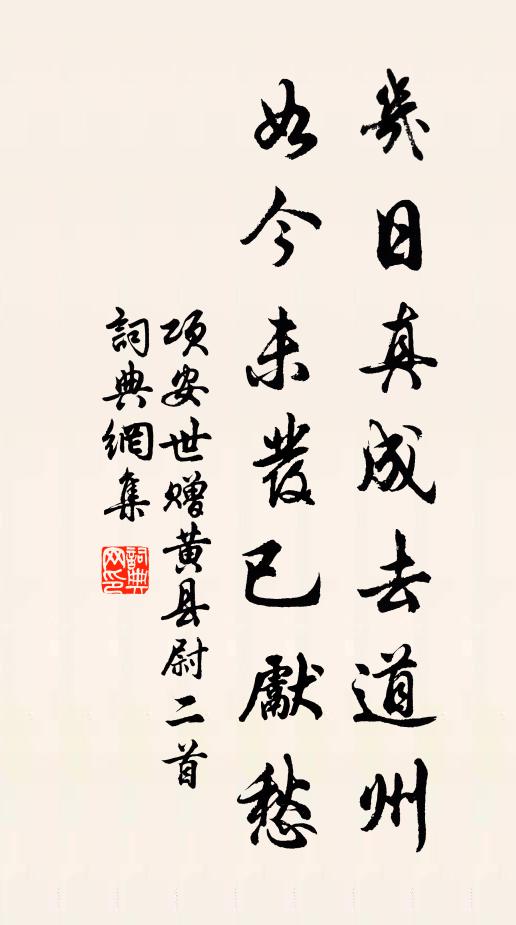 幾日真成去道州
如今未發已獻愁
项安世赠黄县尉二首
詞典網集
詞典网印